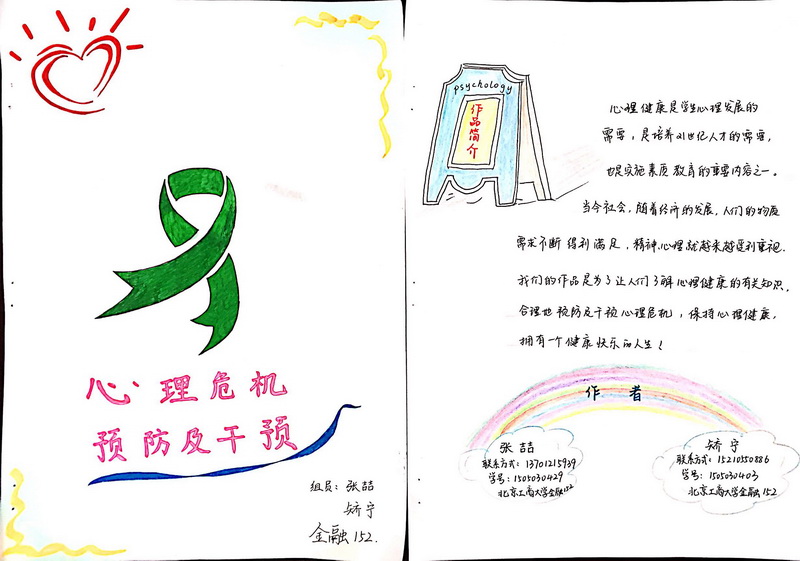 心理危机
预防及干预
组员：张喆
矫宁
金融152.
psychology
作品简介
心理健康是学生心理发展的
需要，是培养21世纪人才的需要，
也是实施素质教育的重要内容之一。
当今社会，随着经济的发展，人们的物质
需求不断得到满足，精神心理就越来越受到重视.
我们的作品是为了让人们了解心理健康的有关知识，
合理地预防及干预心理危机，保持心理健康，
拥有一个健康快乐的人生！
作者
张喆
联系方式：13701215939
学号：1505030429
北京工商大学金融152
矫宁
联系方式：15210550886
学号：1505030403
北京工商大学金融152